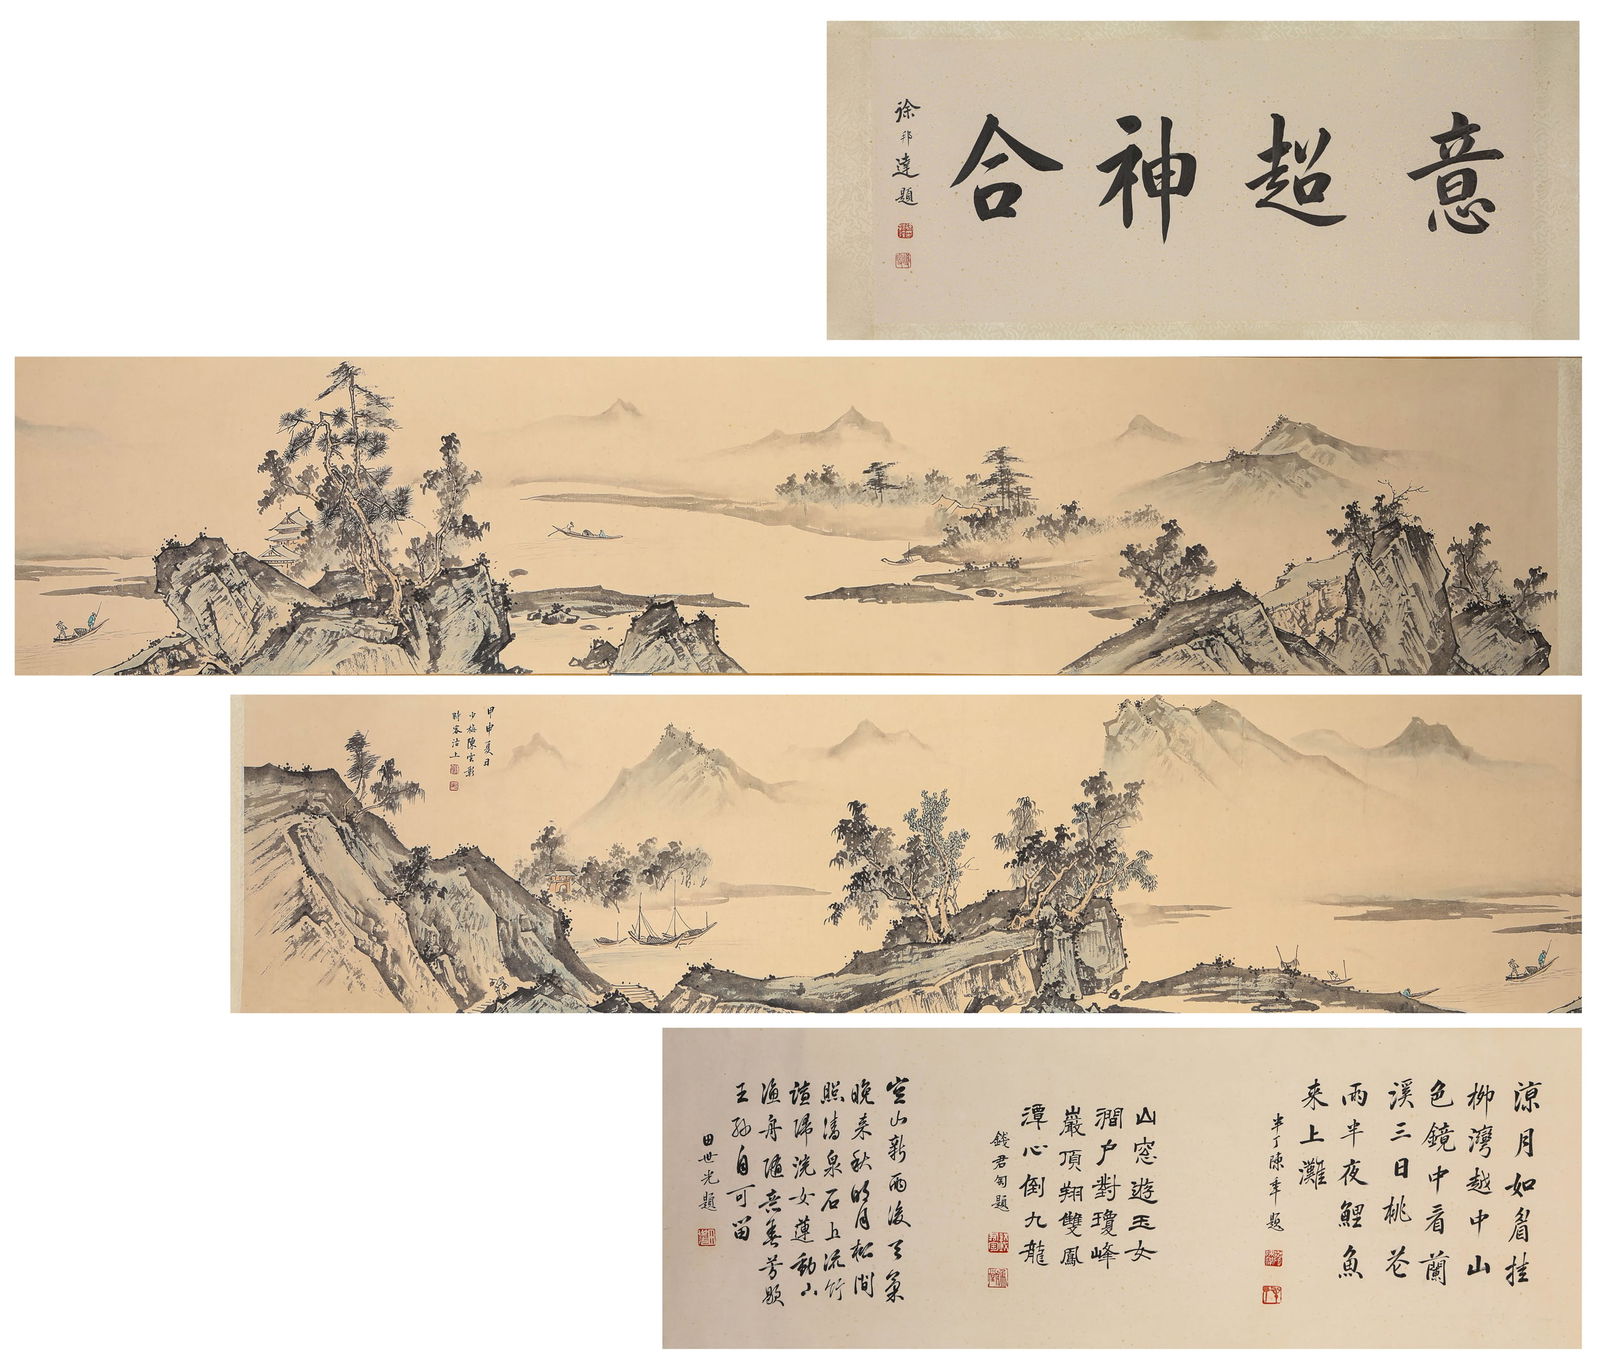 意超神合
徐邦達題
甲申夏日
少梅陳雲彰
時客沽上
涼月如眉挂
柳灣越中山
色鏡中看蘭
溪三日桃花
雨半夜鯉魚
來上灘
半丁陳年題
山窓遊玉女
澗户對瓊峰
巖頂翔雙鳳
潭心倒九龍
錢君匋題
空山新雨後天氣
晚來秋明月松間
照清泉石上流竹
諠歸浣女蓮動下
漁舟隨意春芳歇
王孫自可留
田世光題